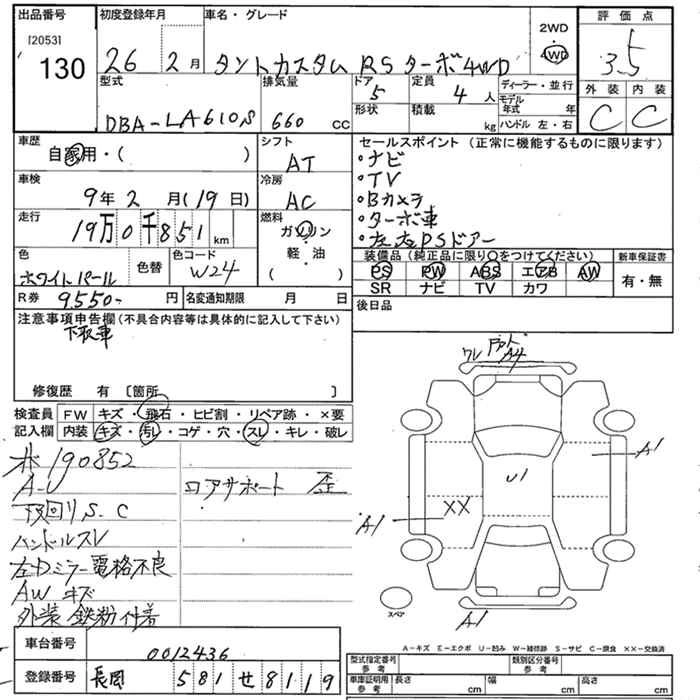 出品番号
[2053]
130
初度登録年月
26 2月
車名・グレード
タントカスタム RS ターボ4WD
2WD
4WD
評価点
3.5
外装 内装
C C
型式
DBA-LA610S
排気量
660 CC
ドア
5
形状
定員
4 人
積載
kg
ディーラー・並行
モデル年式 年
ハンドル 左・右
車歴
自家用・( )
シフト
AT
セールスポイント (正常に機能するものに限ります)
・ナビ
・TV
・Bカメラ
・ターボ車
・左右PSドアー
車検
9年2月(19日)
冷房
AC
走行
19万0千851km
燃料
ガソリン
軽・油
( )
色
ホワイトパール
色替
色コード
W24
装備品 (純正品に限り○をつけてください)
PS PW ABS エアB AW
SR ナビ TV カワ
新車保証書
有・無
R券 9550- 円
名変通知期限 月 日
後日品
注意事項申告欄 (不具合内容等は具体的に記入して下さい)
下取車
修復歴 有 〔箇所 〕
検査員記入欄
FW キズ・飛石・ヒビ割・リペア跡・×要
内装 キズ・汚レ・コゲ・穴・スレ・キレ・破レ
190852
A-U
コアサポート 歪
下回りS.C
ハンドルスレ
左Dミラー電格不良
AW キズ
外装 鉄粉付着
ワレ
A4
A1
U1
XX
A1
A1
スペア
A-キズ E-エクボ U-凹み W-補修跡 S-サビ C-腐食 XX-交換済
車台番号
0012436
登録番号
長岡 581 せ 8119
型式指定番号
参考
類別区分番号
参考
車庫証明用
参考
長さ cm
幅 cm
高さ cm